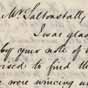 Mr Saltonstall,
I was glad
by your note of
to find th
were wincing u